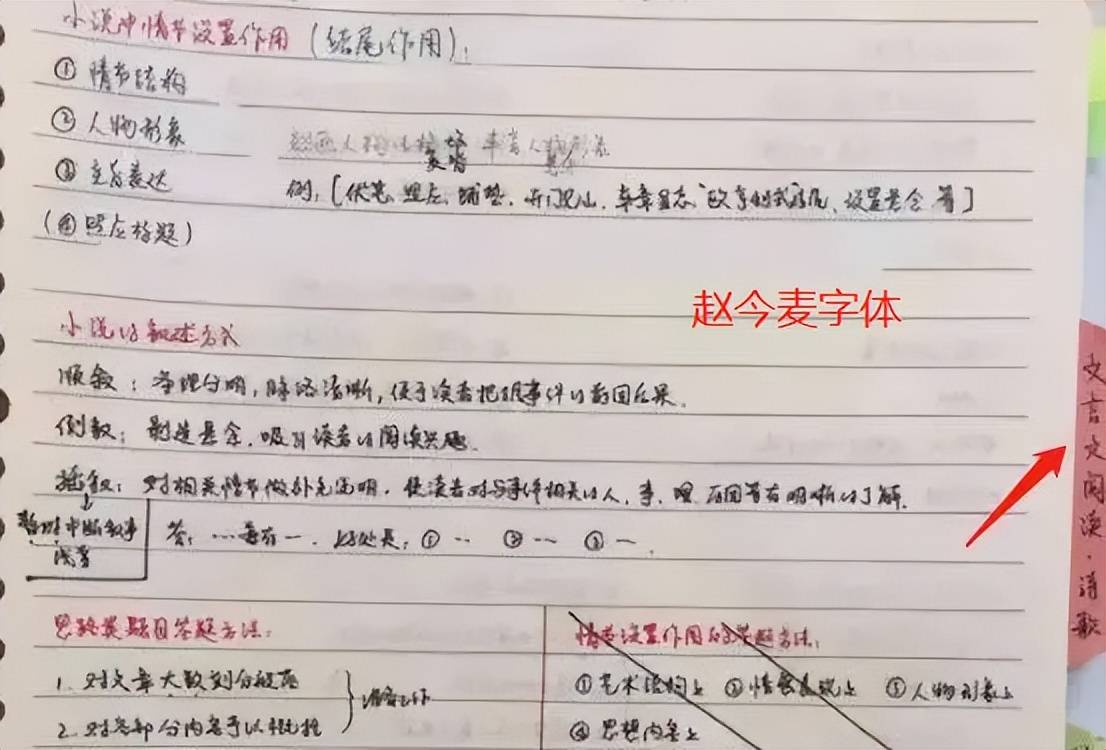 小说中情节设置作用（结尾作用）：
① 情节结构
② 人物形象
③ 主旨表达
例：[伏笔、照应、铺垫、开门见山、卒章显志、欧亨利式结尾、设置悬念 等]
（④照应标题）
赵今麦字体
小说的叙述方式
顺叙：条理分明，脉络清晰，便于读者把握事件的前因后果。
倒叙：制造悬念，吸引读者的阅读兴趣。
插叙：对相关情节做补充说明，使读者对与事件相关的人、事、理、原因等有明晰的了解。
暂时中断叙事
答：…每有一．好处是：① … ② … ③ …．
思路类题目答题方法：
1. 对文章大致划分段落
2. 对各部分内容予以概括
情节设置作用的答题方法：
① 艺术结构上 ② 情感表现上 ③ 人物形象上
④ 思想内容上
文言文阅读·诗歌